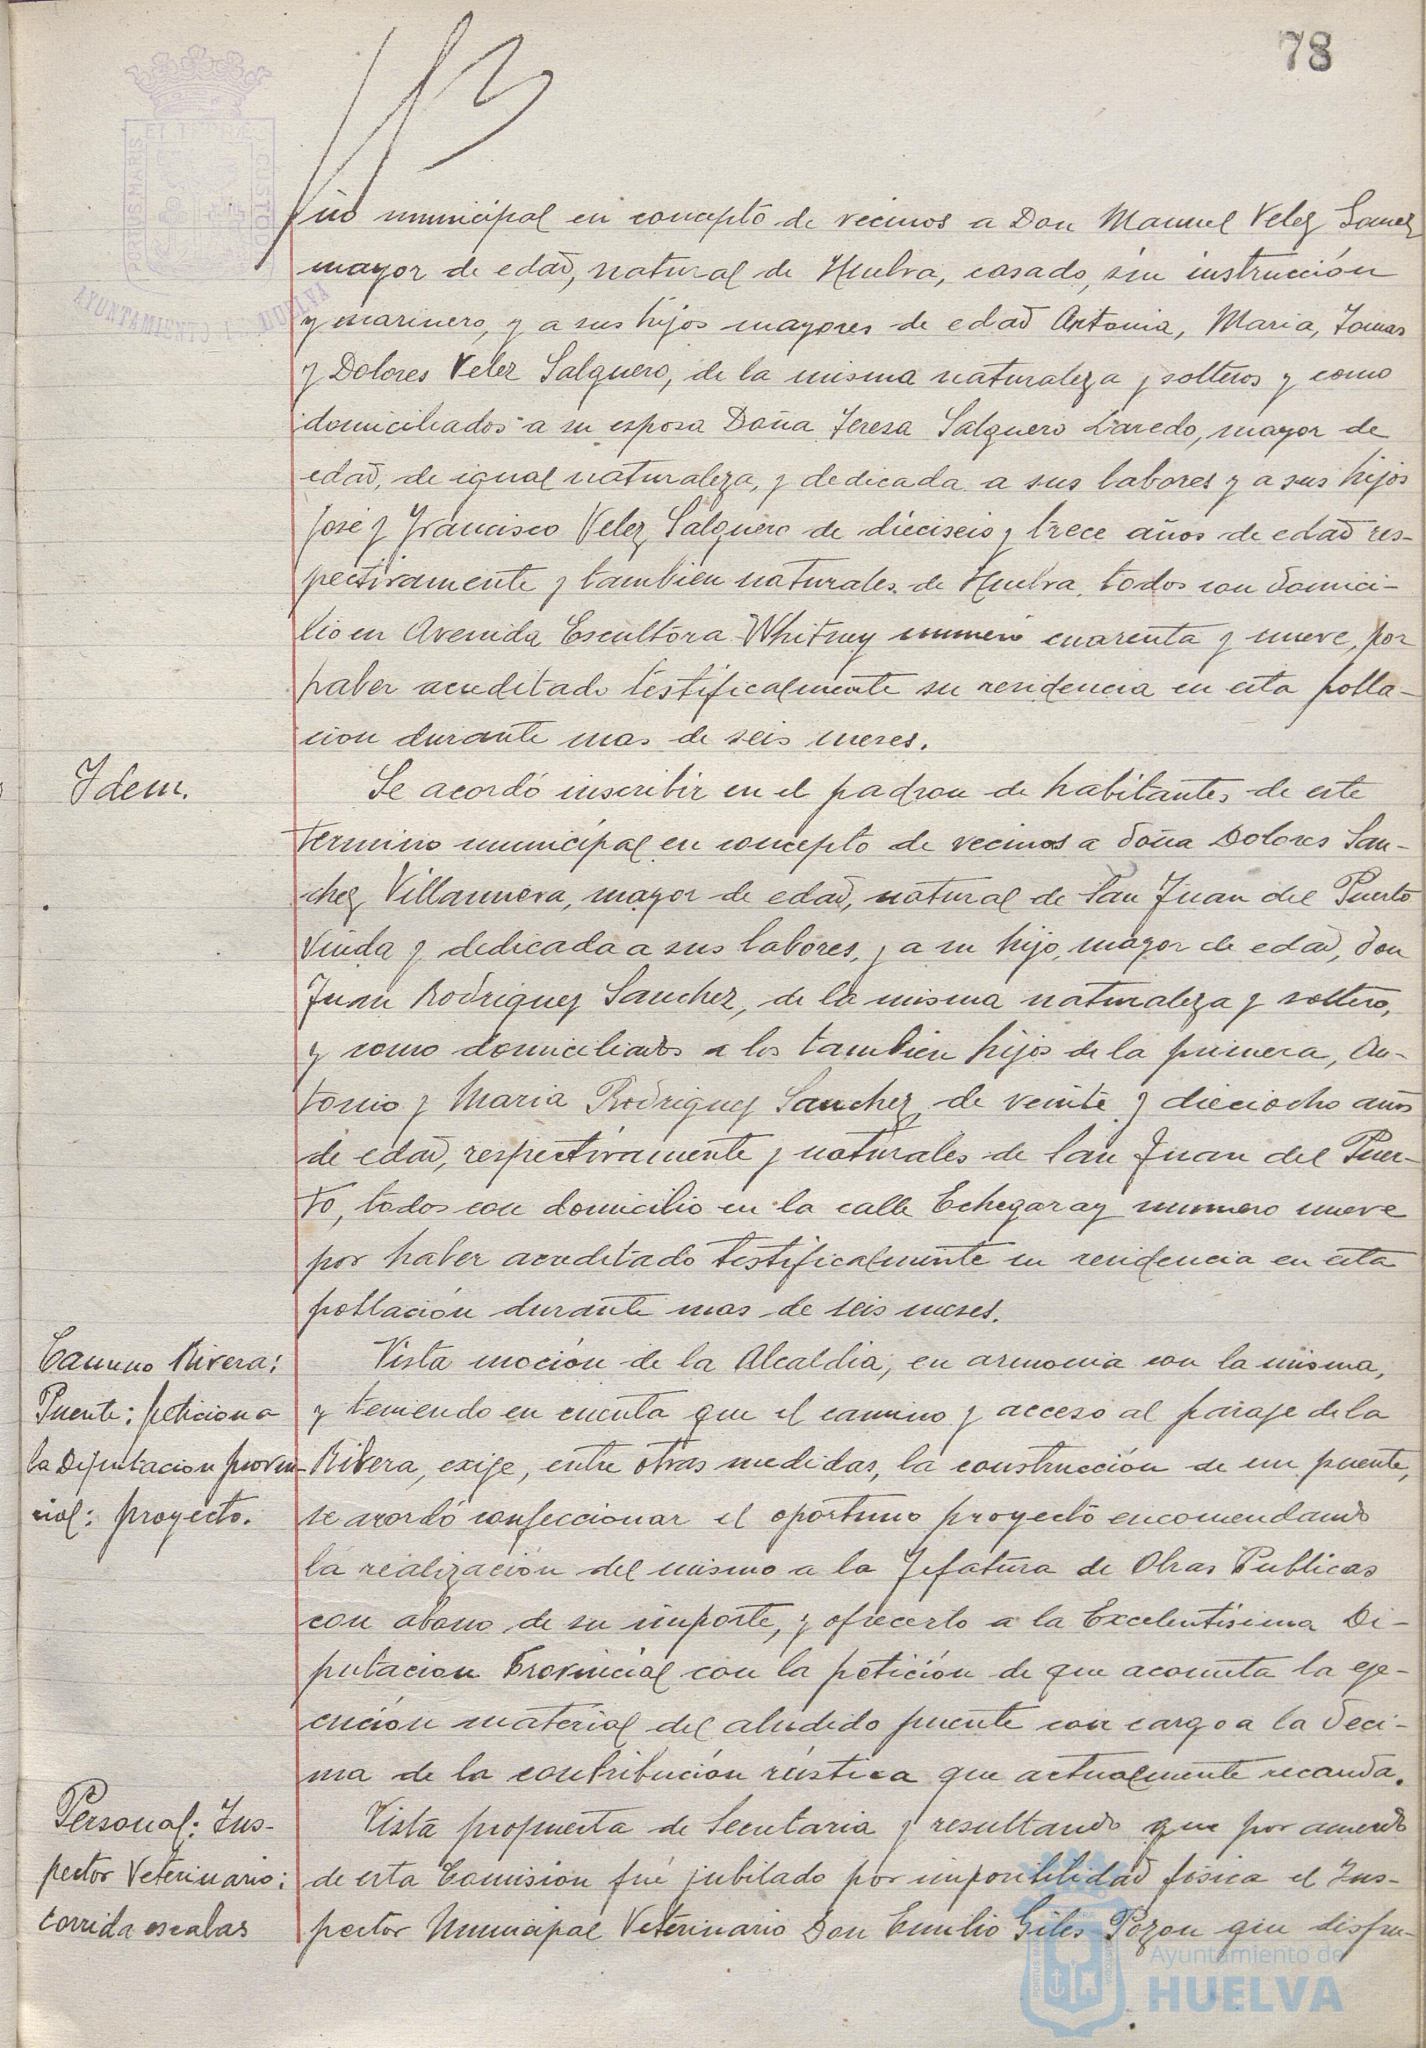 78
PORTUS MARIS ET TERRAE CUSTODIA
AYUNTAMIENTO DE HUELVA
no municipal en concepto de vecinos a Don Manuel Velez
mayor de edad, natural de Huelva, casado, sin instrucción
y marinero, y a sus hijos mayores de edad Antonia, Maria, Tomas
y Dolores Velez Salguero, de la misma naturaleza y solteros y como
domiciliados a su esposa Doña Teresa Salguero Laredo, mayor de
edad, de igual naturaleza, y dedicada a sus labores y a sus hijos
José y Francisco Velez Salguero de dieciseis y trece años de edad res-
pectivamente y tambien naturales de Huelva, todos con domici-
lio en Avenida Escultora Whitney numero cuarenta y nueve, por
haber acreditado testificalmente su residencia en esta pobla-
cion durante mas de seis meses.
Idem.
Se acordó inscribir en el padron de habitantes de este
termino municipal en concepto de vecinos a doña Dolores San-
chez Villanueva, mayor de edad, natural de San Juan del Puerto
viuda y dedicada a sus labores, y a su hijo, mayor de edad, don
Juan Rodriguez Sanchez, de la misma naturaleza y soltero,
y como domiciliados a los tambien hijos de la primera, An-
tonio y Maria Rodriguez Sanchez de veinte y dieciocho años
de edad, respectivamente y naturales de San Juan del Puer-
to, todos con domicilio en la calle Echegaray numero nueve
por haber acreditado testificalmente su residencia en esta
población durante mas de seis meses.
Camino Rivera:
Puente: peticion a
la Diputacion provin-
cial: proyecto.
Vista moción de la Alcaldia, en armonia con la misma,
y teniendo en cuenta que el camino y acceso al paraje de la
Ribera, exije, entre otras medidas, la construcción de un puente,
se acordó confeccionar el oportuno proyecto encomendando
la realización del mismo a la Jefatura de Obras Publicas
con abono de su importe, y ofrecerlo a la Excelentísima Di-
putacion Provincial con la petición de que acometa la eje-
cución material del aludido puente con cargo a la deci-
ma de la contribución rústica que actualmente recauda.
Personal: Ins-
pector Veterinario:
Corrida escalas
Vista propuesta de Secretaria y resultando que por acuerdo
de esta Comisión fué jubilado por imposibilidad física el Ins-
pector Municipal Veterinario Don Emilio Giles Pozon que disfru-
Ayuntamiento de
HUELVA